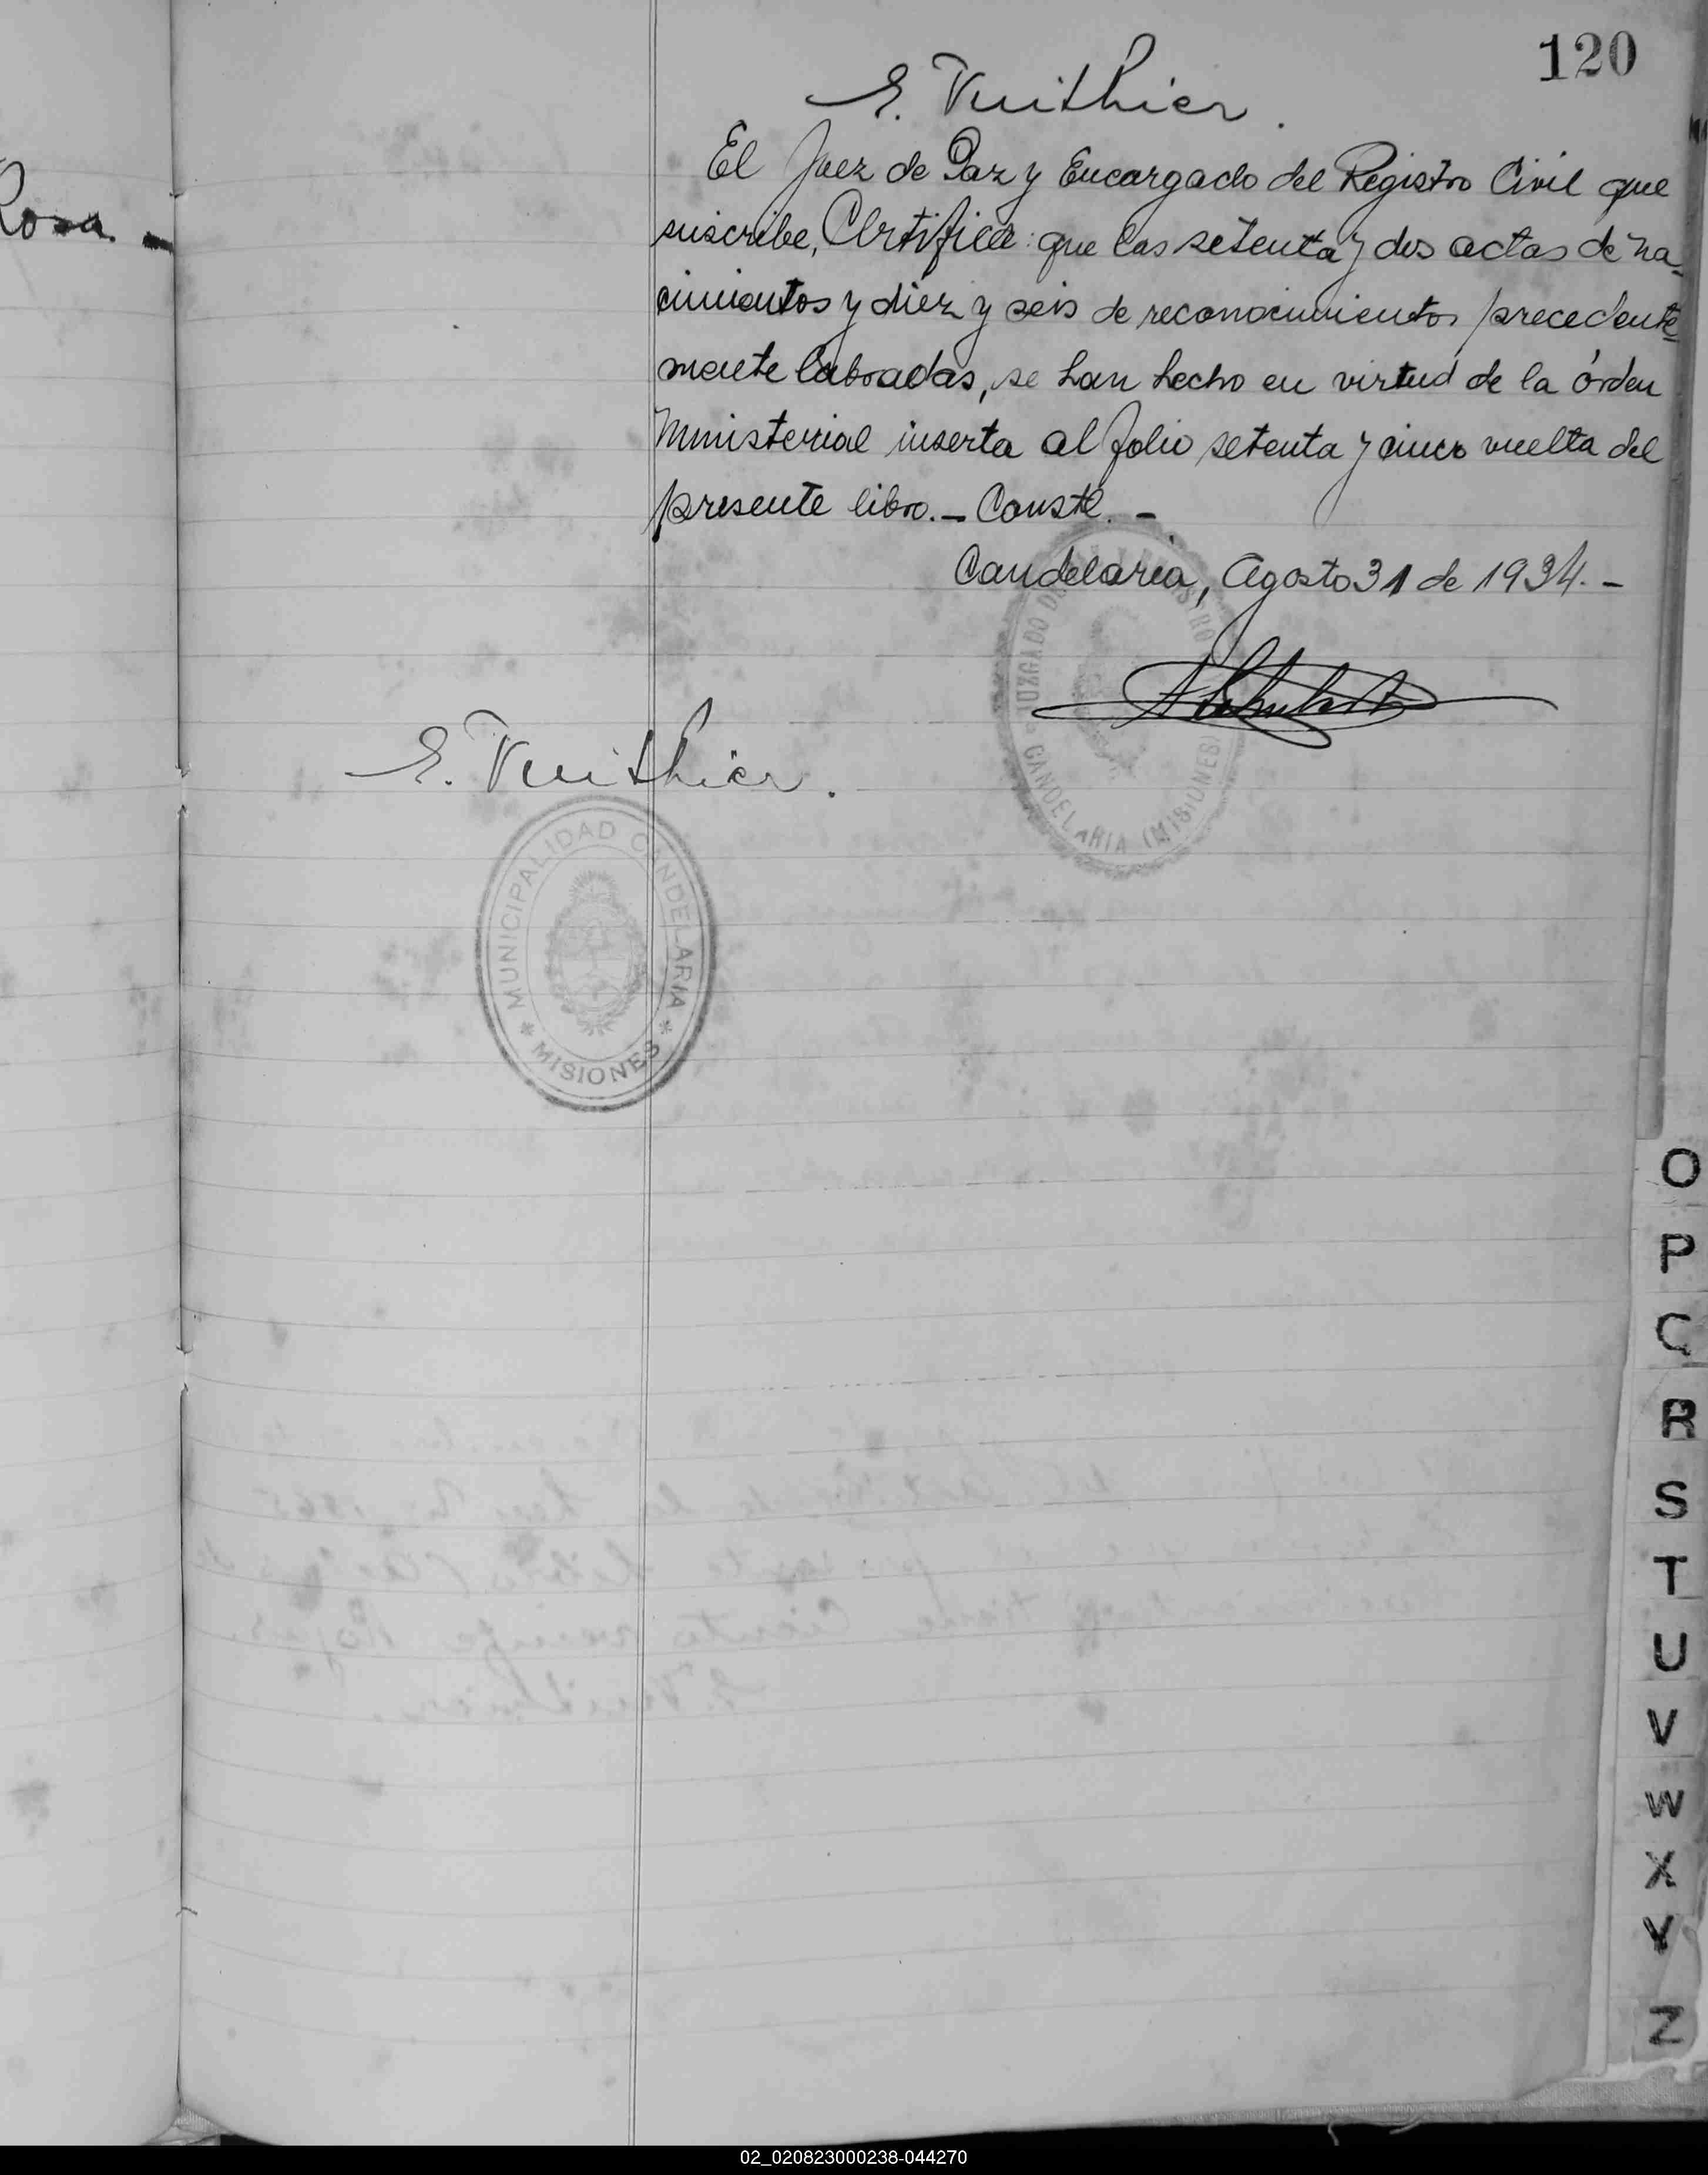 120
E. Vuithier.
El Juez de Paz y Encargado del Registro Civil que
suscribe, Certifica: que las setenta y dos actas de na-
cimientos y diez y seis de reconocimientos precedente
mente labradas, se han hecho en virtud de la órden
Ministerial inserta al folio setenta y cinco vuelta del
presente libro. — Conste. —
Candelaria, Agosto 31 de 1934. —
Rosa. —
E. Vuithier.
JUZGADO DE
CANDELARIA (MISIONES)
MUNICIPALIDAD CANDELARIA
* MISIONES *
O
P
R
S
T
U
V
W
X
Y
Z
02_020823000238-044270